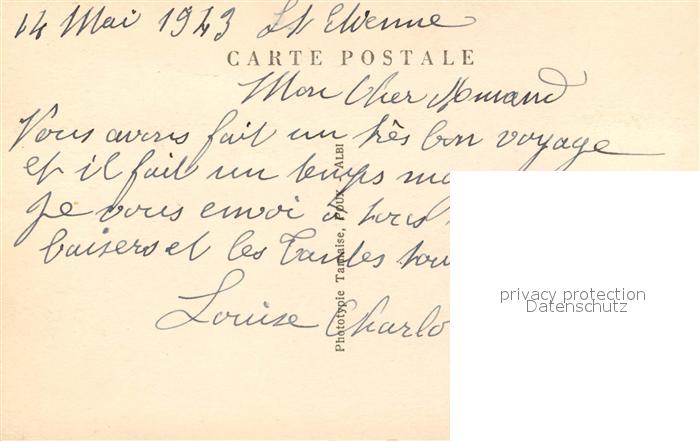 14 Mai 1943 St Etienne
CARTE POSTALE
Mon Cher Armand
Vous avons fait un très bon voyage
et il fait un temps
Je vous envoi à tous
baisers et les Tantes
Louise Charlo
Phototypie Tarnaise, POUX - ALBI
privacy protection
Datenschutz